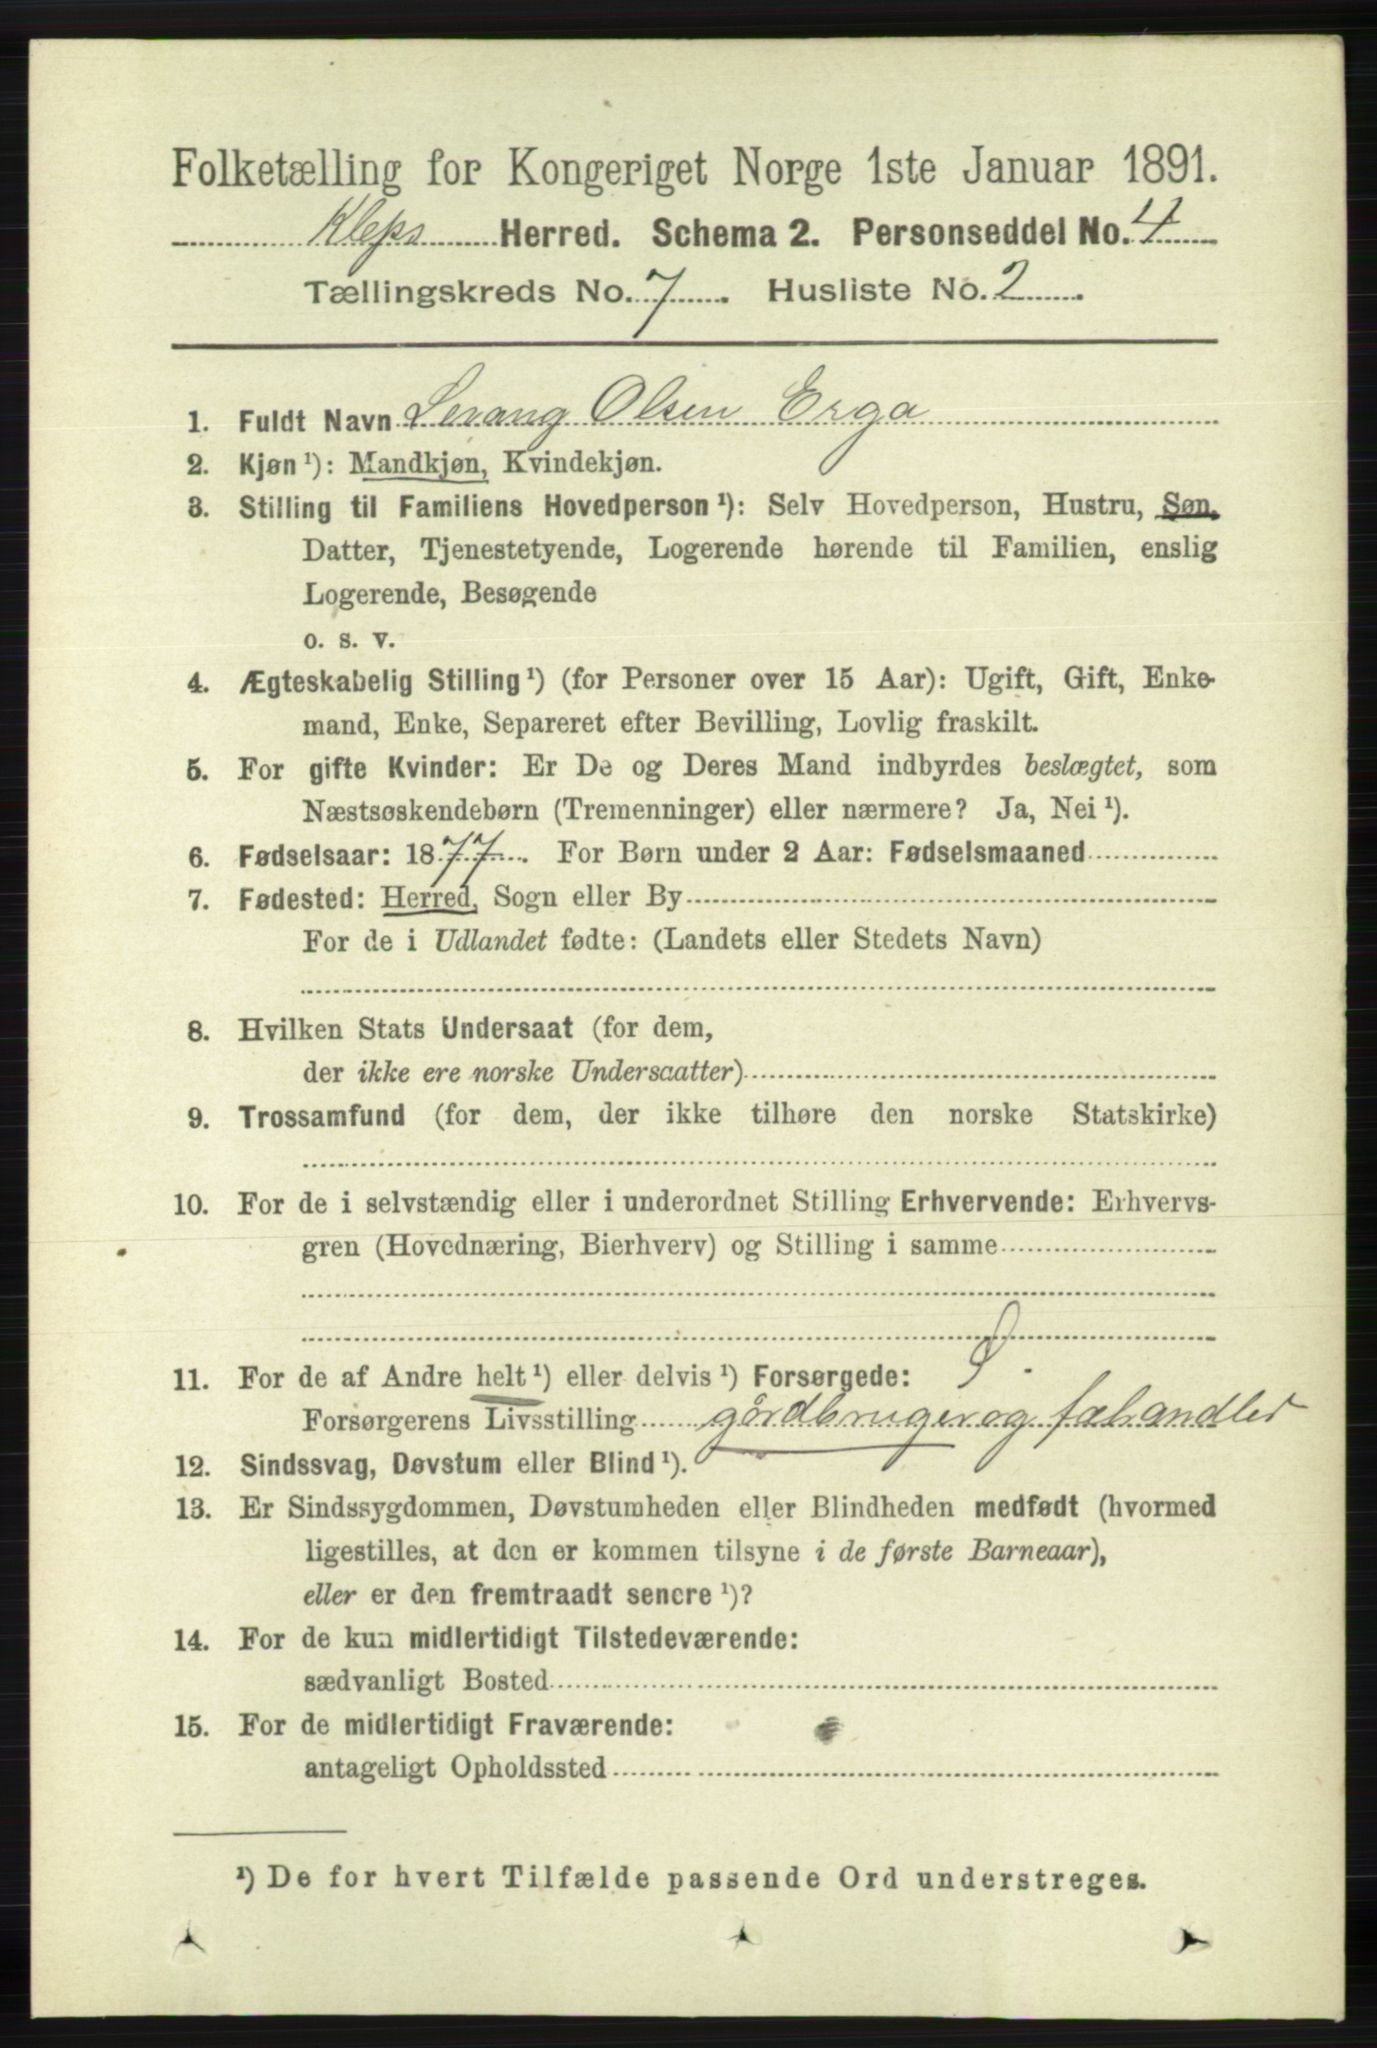 Folketælling for Kongeriget Norge 1ste Januar 1891.
Kleps Herred. Schema 2. Personseddel No. 4
Tællingskreds No. 7. Husliste No. 2.
1. Fuldt Navn Serang Olsen Erga
2. Kjøn ¹): Mandkjøn, Kvindekjøn.
3. Stilling til Familiens Hovedperson ¹): Selv Hovedperson, Hustru, Søn,
Datter, Tjenestetyende, Logerende hørende til Familien, enslig
Logerende, Besøgende
o. s. v.
4. Ægteskabelig Stilling ¹) (for Personer over 15 Aar): Ugift, Gift, Enke-
mand, Enke, Separeret efter Bevilling, Lovlig fraskilt.
5. For gifte Kvinder: Er De og Deres Mand indbyrdes beslægtet, som
Næstsøskendebørn (Tremenninger) eller nærmere? Ja, Nei ¹).
6. Fødselsaar: 1877. For Børn under 2 Aar: Fødselsmaaned
7. Fødested: Herred, Sogn eller By
For de i Udlandet fødte: (Landets eller Stedets Navn)
8. Hvilken Stats Undersaat (for dem,
der ikke ere norske Undersaatter)
9. Trossamfund (for dem, der ikke tilhøre den norske Statskirke)
10. For de i selvstændig eller i underordnet Stilling Erhvervende: Erhvervs-
gren (Hovednæring, Bierhverv) og Stilling i samme
11. For de af Andre helt ¹) eller delvis ¹) Forsørgede:
Forsørgerens Livsstilling gårdbruger og fæhandler
12. Sindssvag, Døvstum eller Blind ¹).
13. Er Sindssygdommen, Døvstumheden eller Blindheden medfødt (hvormed
ligestilles, at den er kommen tilsyne i de første Barneaar),
eller er den fremtraadt senere ¹)?
14. For de kun midlertidigt Tilstedeværende:
sædvanligt Bosted
15. For de midlertidigt Fraværende:
antageligt Opholdssted
¹) De for hvert Tilfælde passende Ord understreges.